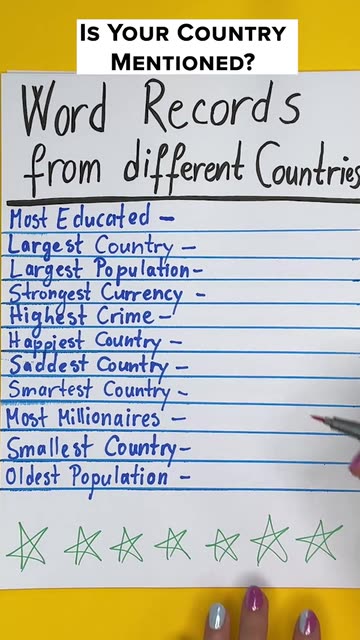 Is Your Country
Mentioned?
Word Records
from different Countries
Most Educated -
Largest Country -
Largest Population-
Strongest Currency -
Highest Crime -
Happiest Country -
Saddest Country -
Smartest Country -
Most Millionaires -
Smallest Country-
Oldest Population -